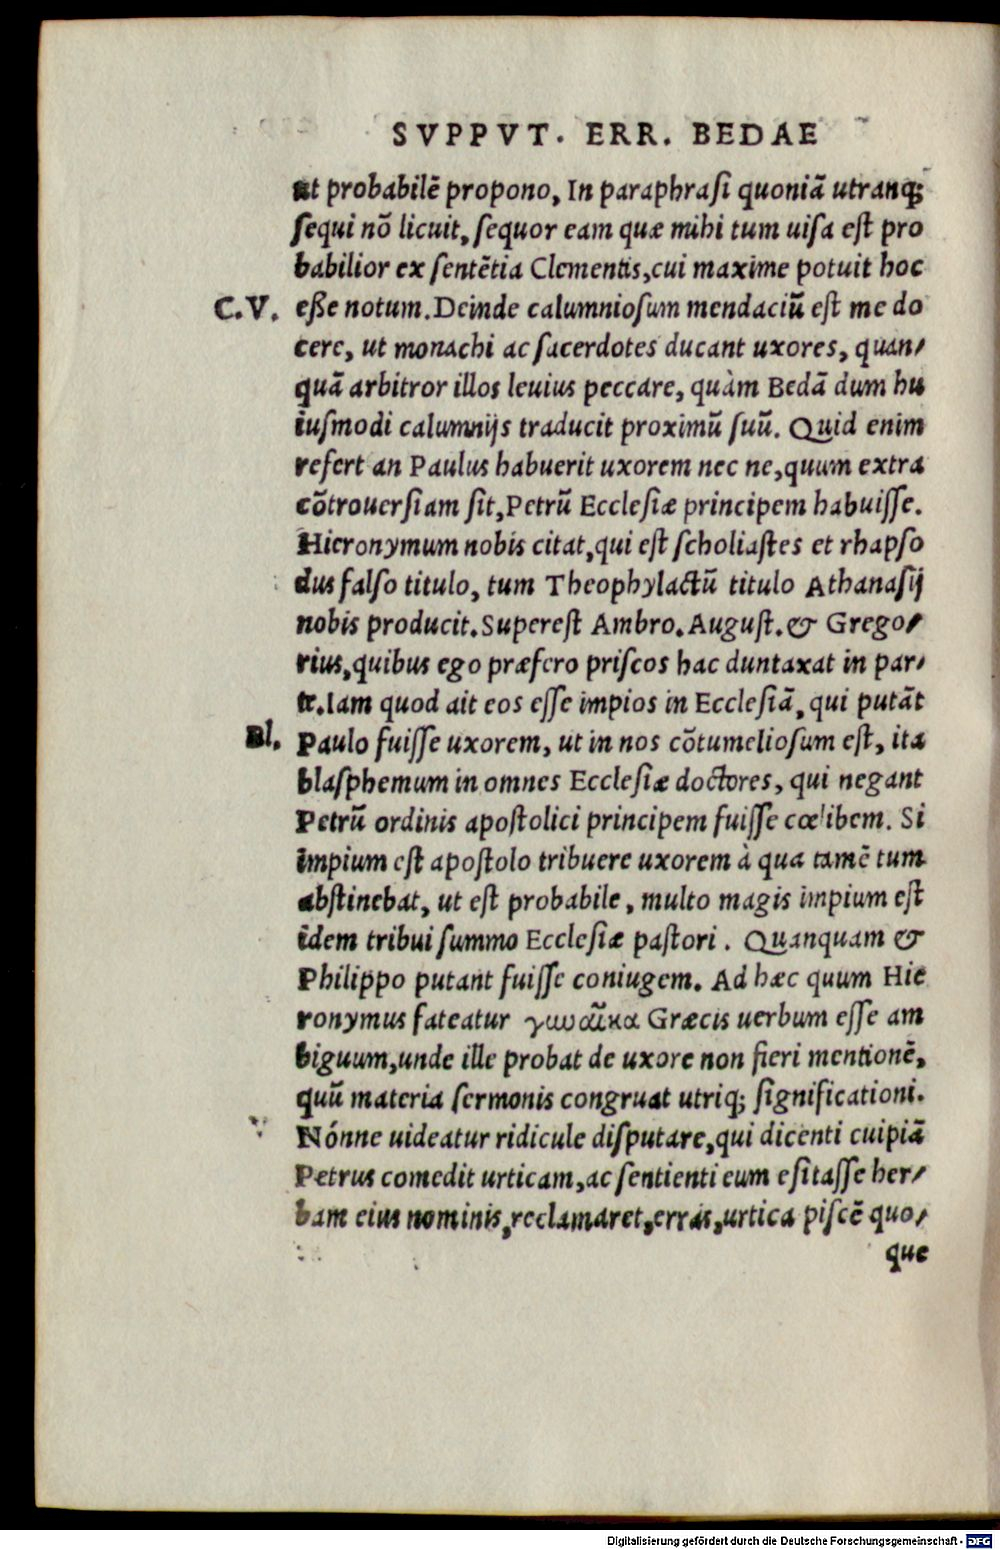 SVPPVT. ERR. BEDAE
ut probabilē propono, In paraphrasi quoniā utranq;
sequi nō licuit, sequor eam quæ mihi tum uisa est pro
babilior ex sentētia Clementis, cui maxime potuit hoc
C.V. esse notum. Deinde calumniosum mendaciū est me do
cere, ut monachi ac sacerdotes ducant uxores, quan-
quā arbitror illos leuius peccare, quàm Bedā dum hu
iusmodi calumnijs traducit proximū suū. Quid enim
refert an Paulus habuerit uxorem nec ne, quum extra
cōtrouersiam sit, Petrū Ecclesiæ principem habuisse.
Hieronymum nobis citat, qui est scholiastes et rhapso
dus falso titulo, tum Theophylactū titulo Athanasij
nobis producit. Superest Ambro. August. & Grego-
rius, quibus ego præfero priscos hac duntaxat in par-
te. Iam quod ait eos esse impios in Ecclesiā, qui putāt
Bl. Paulo fuisse uxorem, ut in nos cōtumeliosum est, ita
blasphemum in omnes Ecclesiæ doctores, qui negant
Petrū ordinis apostolici principem fuisse cœlibem. Si
impium est apostolo tribuere uxorem à qua tamē tum
abstinebat, ut est probabile, multo magis impium est
idem tribui summo Ecclesiæ pastori. Quanquam &
Philippo putant fuisse coniugem. Ad hæc quum Hie
ronymus fateatur γυναῖκα Græcis uerbum esse am
biguum, unde ille probat de uxore non fieri mentionē,
quū materia sermonis congruat utriq; significationi.
Nónne uideatur ridicule disputare, qui dicenti cuipiā
Petrus comedit urticam, ac sentienti eum esitasse her-
bam eius nominis, reclamaret, erras, urtica piscē quo-
que
Digitalisierung gefördert durch die Deutsche Forschungsgemeinschaft - DFG